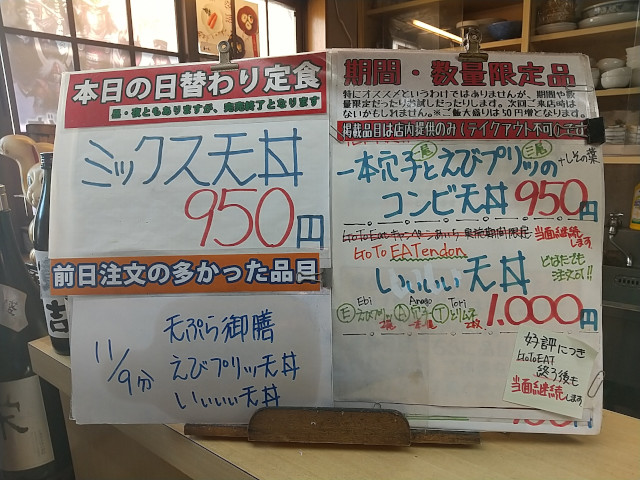 本日の日替わり定食
昼・夜ともありますが、完売終了となります
ミックス天丼
950円
前日注文の多かった品目
11/9分
天ぷら御膳
えびプリッ天丼
いいぃぃ天丼
期間・数量限定品
特にオススメというわけではありませんが、期間や数
量限定だったりお試しだったりします。次回ご来店時は
ないかもしれません。※ご飯大盛りは50円増となります。
掲載品目は店内提供のみ(テイクアウト不可)です
一本穴子と三尾えびプリッの
+しその葉
コンビ天丼 950円
当面継続
します
GoTo EATendon
いいぃぃ天丼
どなたでも
注文可!!
Ebi
Anago
Tori
1.000円
好評につき
GoToEAT
終了後も
当面継続します